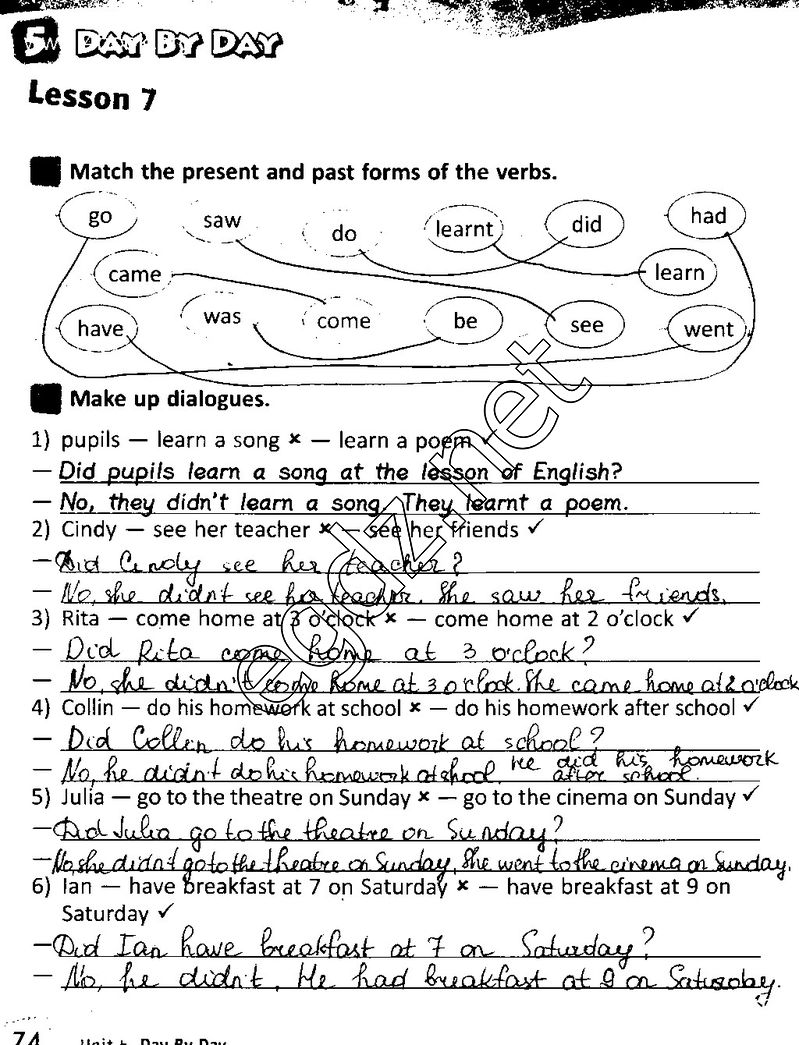 5 DAY BY DAY
Lesson 7
Match the present and past forms of the verbs.
go saw do learnt did had
came learn
have was come be see went
Make up dialogues.
1) pupils — learn a song × — learn a poem ✓
— Did pupils learn a song at the lesson of English?
— No, they didn't learn a song. They learnt a poem.
2) Cindy — see her teacher × — see her friends ✓
— Did Cindy see her teacher?
— No, she didn't see her teacher. She saw her friends.
3) Rita — come home at 3 o'clock × — come home at 2 o'clock ✓
— Did Rita come home at 3 o'clock?
— No, she didn't come home at 3 o'clock. She came home at 2 o'clock
4) Collin — do his homework at school × — do his homework after school ✓
— Did Collin do his homework at school?
— No, he didn't do his homework at shool. He did his homework
after school.
5) Julia — go to the theatre on Sunday × — go to the cinema on Sunday ✓
— Did Julia go to the theatre on Sunday?
— No, she didn't go to the theatre on Sunday. She went to the cinema on Sunday.
6) Ian — have breakfast at 7 on Saturday × — have breakfast at 9 on
Saturday ✓
— Did Ian have breakfast at 7 on Saturday?
— No, he didn't. He had breakfast at 9 on Saturday.
egdz.net
74 Unit 5 Day By Day